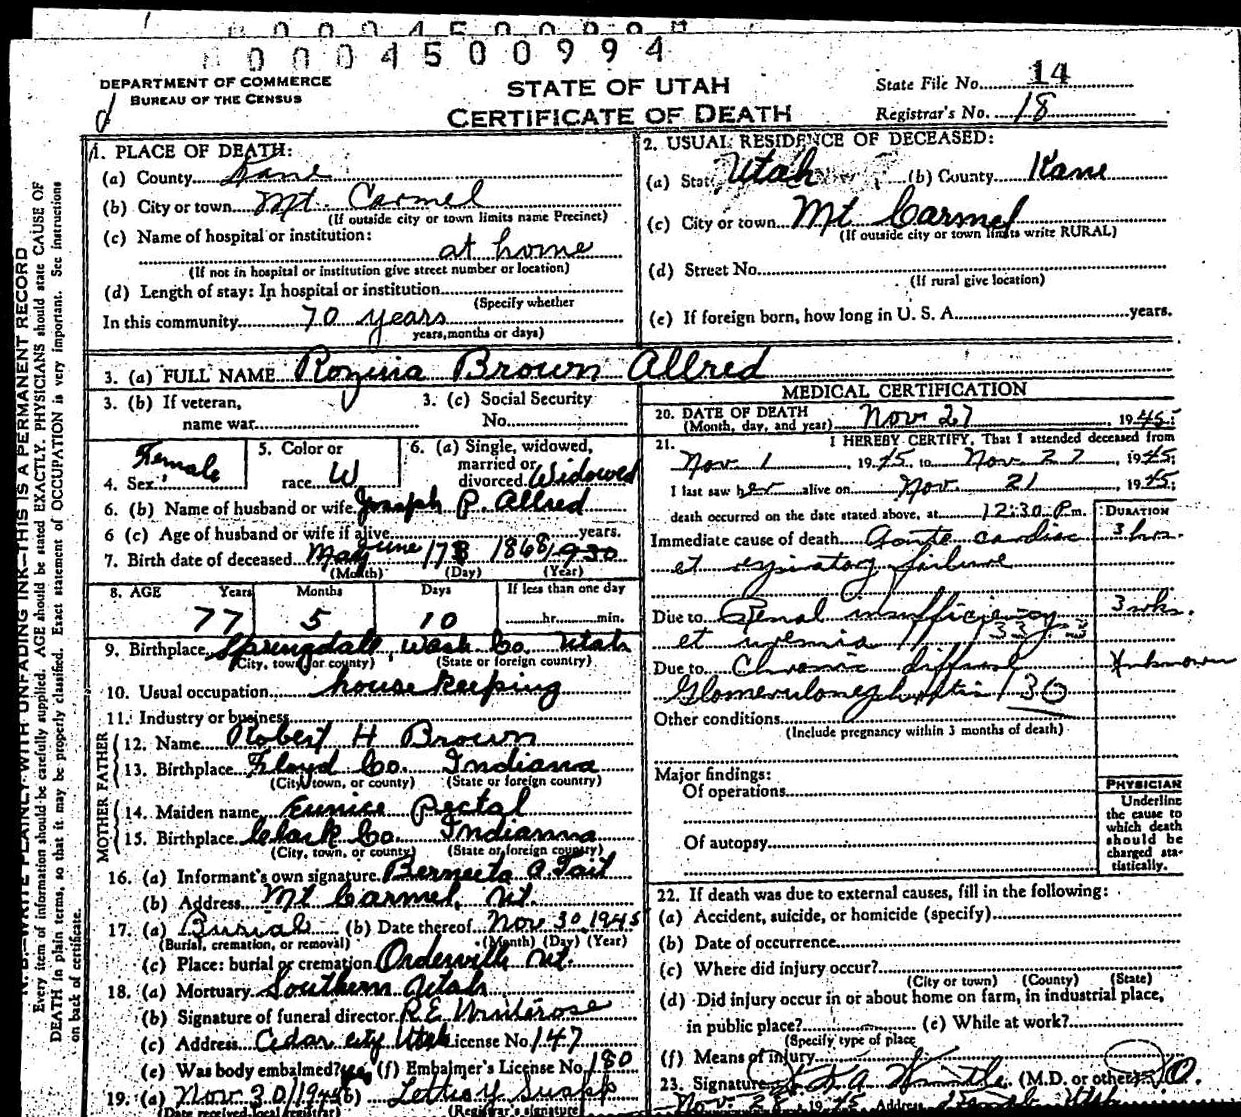 0000 4500994
DEPARTMENT OF COMMERCE
BUREAU OF THE CENSUS
STATE OF UTAH
CERTIFICATE OF DEATH
State File No. 14
Registrar's No. 18
N. B.—WRITE PLAINLY WITH UNFADING INK—THIS IS A PERMANENT RECORD
Every item of information should be carefully supplied. AGE should be stated EXACTLY. PHYSICIANS should state CAUSE OF
DEATH in plain terms, so that it may be properly classified. Exact statement of OCCUPATION is very important. See instructions
on back of certificate.
1. PLACE OF DEATH:
(a) County Kane
(b) City or town Mt. Carmel
(If outside city or town limits name Precinct)
(c) Name of hospital or institution:
at home
(If not in hospital or institution give street number or location)
(d) Length of stay: In hospital or institution
(Specify whether
In this community 70 years
years, months or days)
2. USUAL RESIDENCE OF DECEASED:
(a) State Utah (b) County Kane
(c) City or town Mt Carmel
(If outside city or town limits write RURAL)
(d) Street No.
(If rural give location)
(e) If foreign born, how long in U. S. A. years.
3. (a) FULL NAME Rozina Brown Allred
3. (b) If veteran, 3. (c) Social Security
name war No.
4. Sex Female 5. Color or race W 6. (a) Single, widowed, married or divorced Widowed
6. (b) Name of husband or wife Joseph P. Allred
6 (c) Age of husband or wife if alive years.
7. Birth date of deceased May June 17 1868
(Month) (Day) (Year)
8. AGE Years Months Days If less than one day
77 5 10 hr. min.
9. Birthplace Springdale, Wash Co. Utah
(City, town, or county) (State or foreign country)
10. Usual occupation house keeping
11. Industry or business
FATHER
12. Name Robert H Brown
13. Birthplace Floyd Co. Indiana
(City, town, or county) (State or foreign country)
MOTHER
14. Maiden name Eunice Pectal
15. Birthplace Clark Co. Indianna
(City, town, or county) (State or foreign country)
16. (a) Informant's own signature Berneeta A Tait
(b) Address Mt Carmel, Ut.
17. (a) Burial (b) Date thereof Nov 30, 1945
(Burial, cremation, or removal) (Month) (Day) (Year)
(c) Place: burial or cremation Orderville Ut.
18. (a) Mortuary Southern Utah
(b) Signature of funeral director R.E. Winterose
(c) Address Cedar City Utah License No. 147
(e) Was body embalmed? yes (f) Embalmer's License No. 180
19. (a) Nov 30/1945 (b)
(Date received local registrar) (Registrar's signature)
MEDICAL CERTIFICATION
20. DATE OF DEATH
(Month, day, and year) Nov 27, 1945;
21. I HEREBY CERTIFY, That I attended deceased from
Nov. 1, 1945, to Nov. 27, 1945;
I last saw her alive on Nov. 21, 1945;
death occurred on the date stated above, at 12:30 P.m. DURATION
Immediate cause of death Acute cardiac 3 hrs.
et respiratory failure
Due to Renal insufficiency 3 wks.
et uremia
Due to Chronic diffuse Unknown
Glomerulonephritis 130
Other conditions
(Include pregnancy within 3 months of death)
Major findings:
Of operations
Of autopsy
PHYSICIAN
Underline
the cause to
which death
should be
charged sta-
tistically.
22. If death was due to external causes, fill in the following:
(a) Accident, suicide, or homicide (specify)
(b) Date of occurrence
(c) Where did injury occur?
(City or town) (County) (State)
(d) Did injury occur in or about home on farm, in industrial place,
in public place? (e) While at work?
(Specify type of place
(f) Means of injury
23. Signature (M.D. or other) D.O.
Nov. 28, 1945 Address Kanab Utah